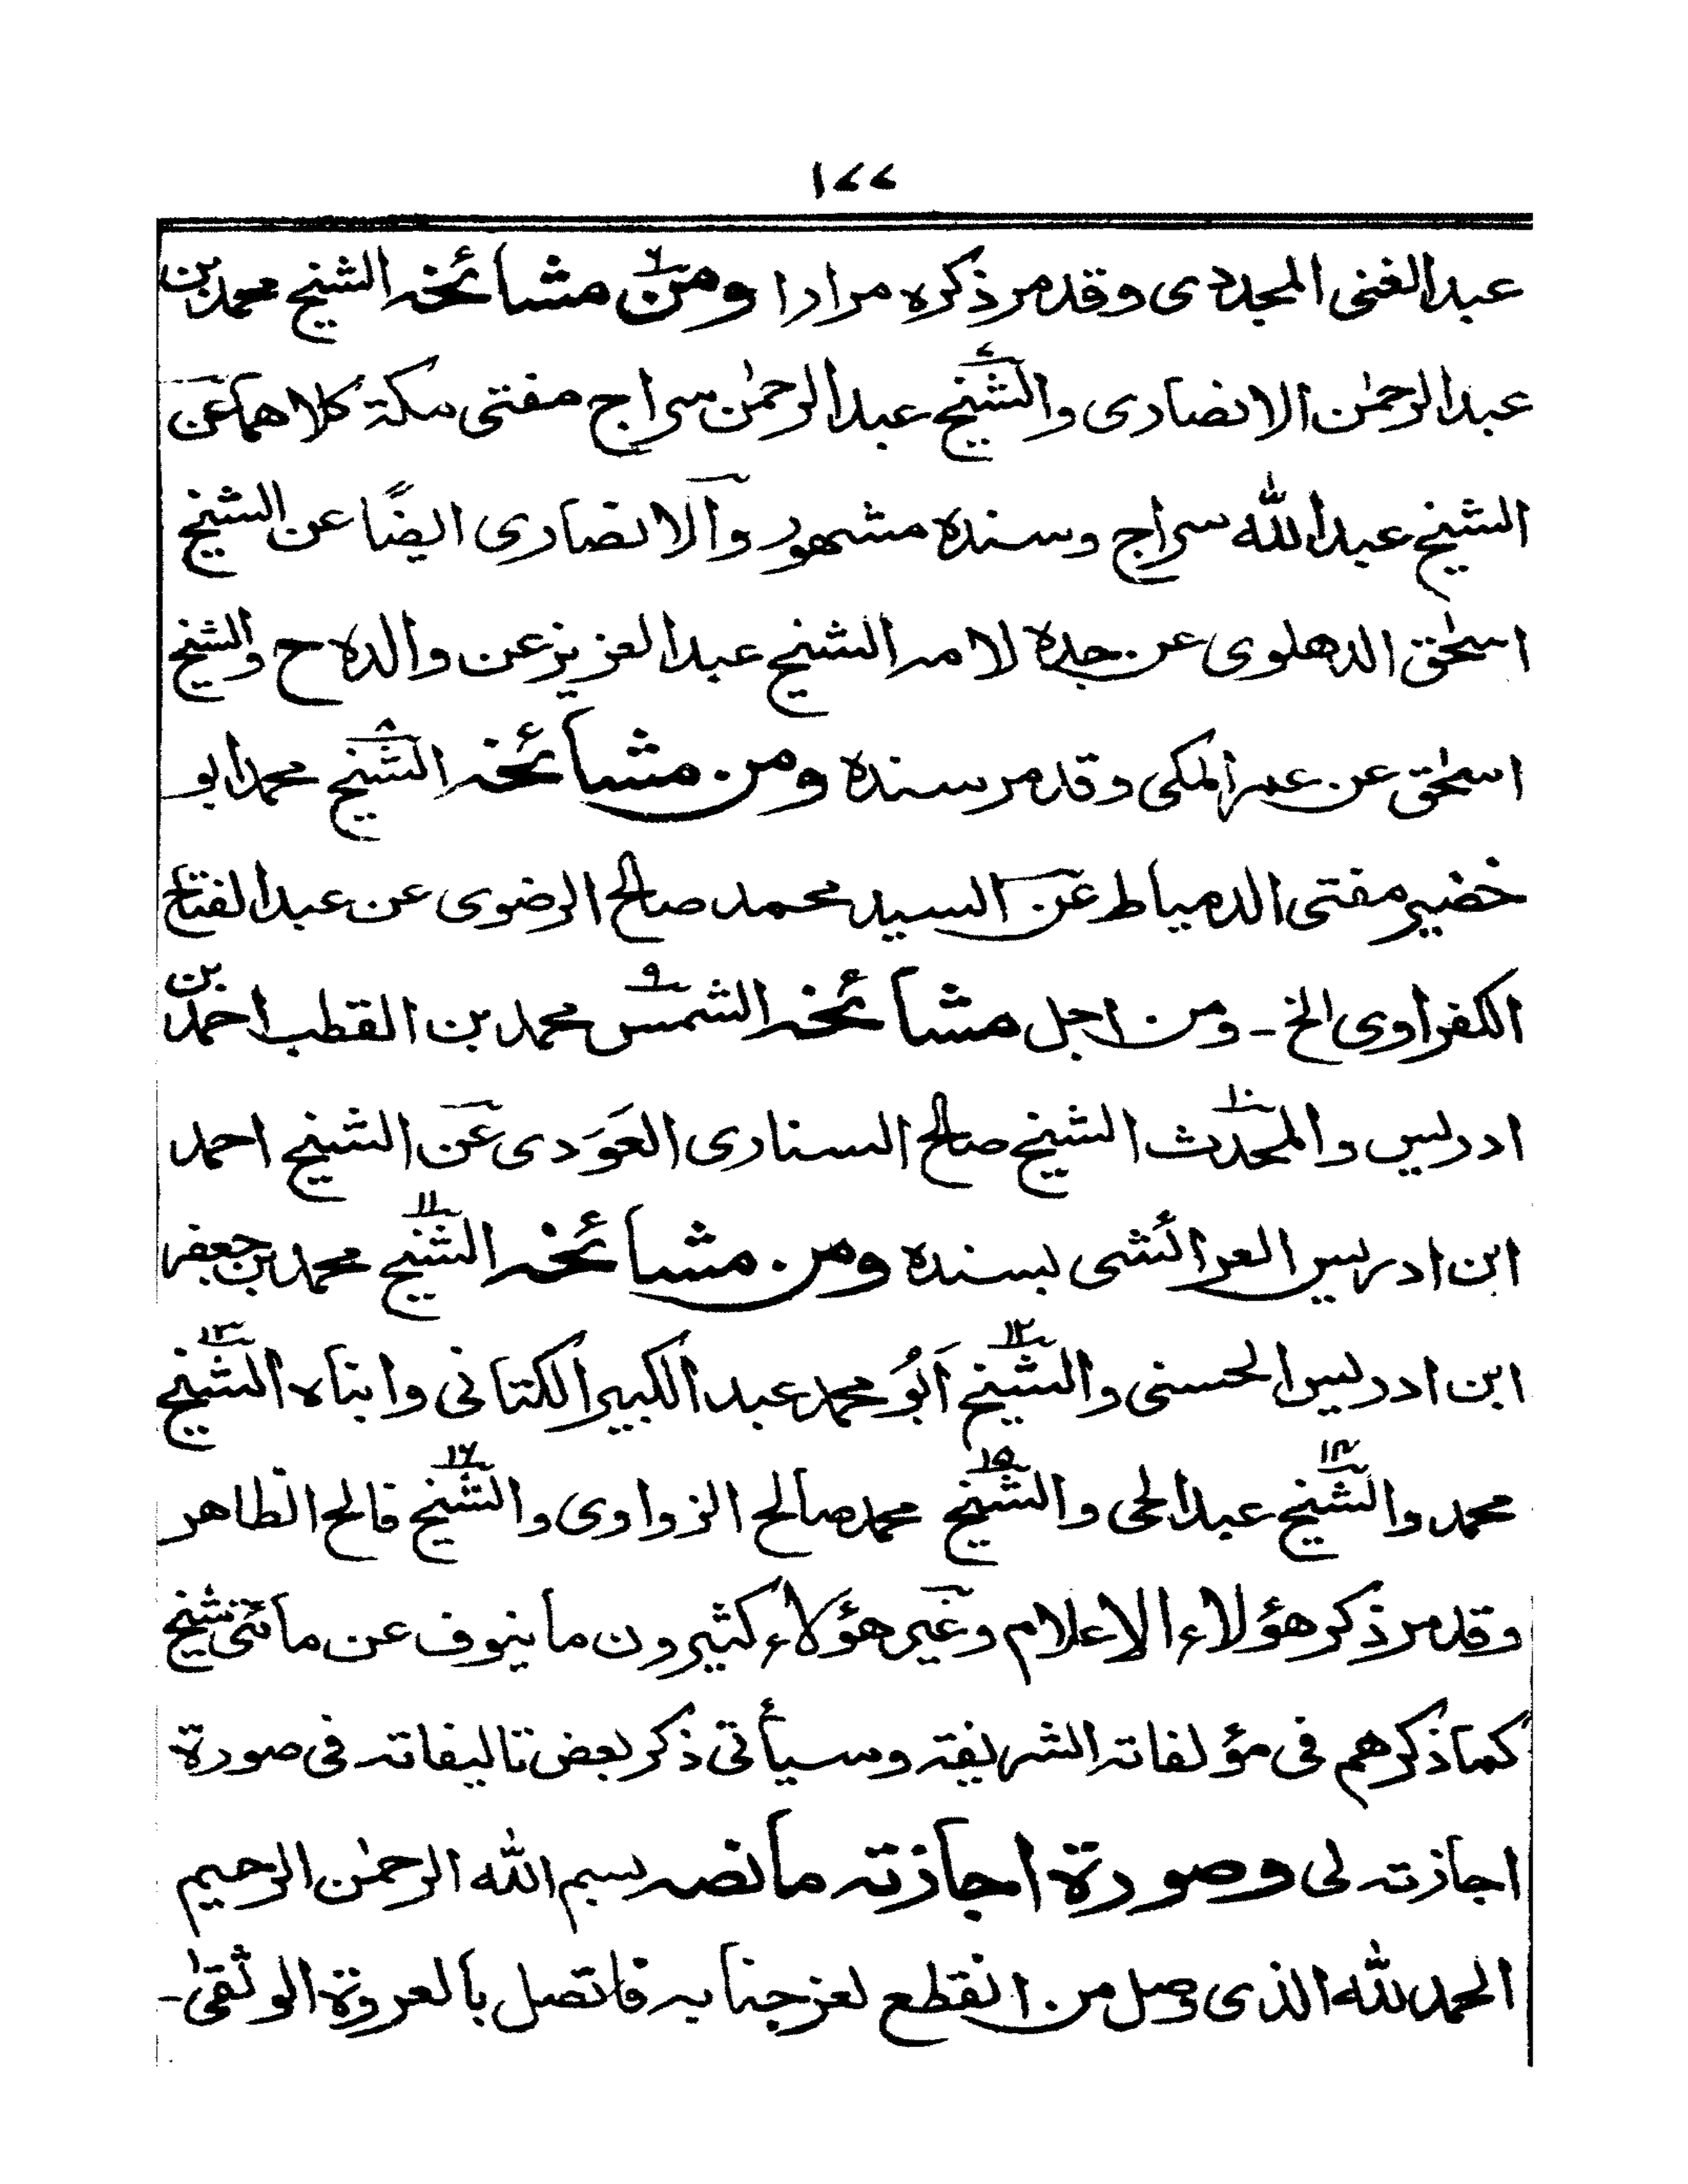 ۱۷۷
عبدالغنی المجددی وقدمر ذکره مرارا ومن۶ مشائخه الشیخ محمد بن
عبدالرحمٰن الانصاری والشیخ۷ عبدالرحمٰن سراج مفتی مکة کلاهما عن
الشیخ عبدالله سراج وسنده مشهور والانصاری ایضًا عن الشیخ
اسحٰق الدهلوی عن جده لامه الشیخ عبدالعزیز عن والده ح والشیخ
اسحٰق عن عمر المکی وقدمر سنده ومن مشائخه الشیخ۸ محمد ابو
خضیر مفتی الدمیاط عن السید محمد صالح الرضوی عن عبدالفتاح
الکفراوی الخ - ومن اجل مشائخه الشمس۹ محمد بن القطب احمد بن
ادریس والمحدث۱۰ الشیخ صالح السناری العَوَدی عن الشیخ احمد
ابن ادریس العرائشی بسنده ومن مشائخه الشیخ۱۱ محمد بن جعفر
ابن ادریس الحسنی والشیخ۱۲ اَبُو محمد عبد الکبیر الکتانی وابناه الشیخ۱۳
محمد والشیخ۱۴ عبدالحی والشیخ۱۵ محمد صالح الزواوی والشیخ۱۶ فالح الظاهر
وقدمر ذکر هؤلاء الاعلام وغیر هؤلاء کثیرون ما ینوف عن مائتی شیخ
کما ذکرهم فی مؤلفاته الشریفة وسیأتی ذکر بعض تالیفاته فی صورة
اجازته لی وصورة اجازته ما نصه بسم الله الرحمٰن الرحیم
الحمد لله الذی وصل من انقطع لعز جنابه فاتصل بالعروة الوثقیٰ-